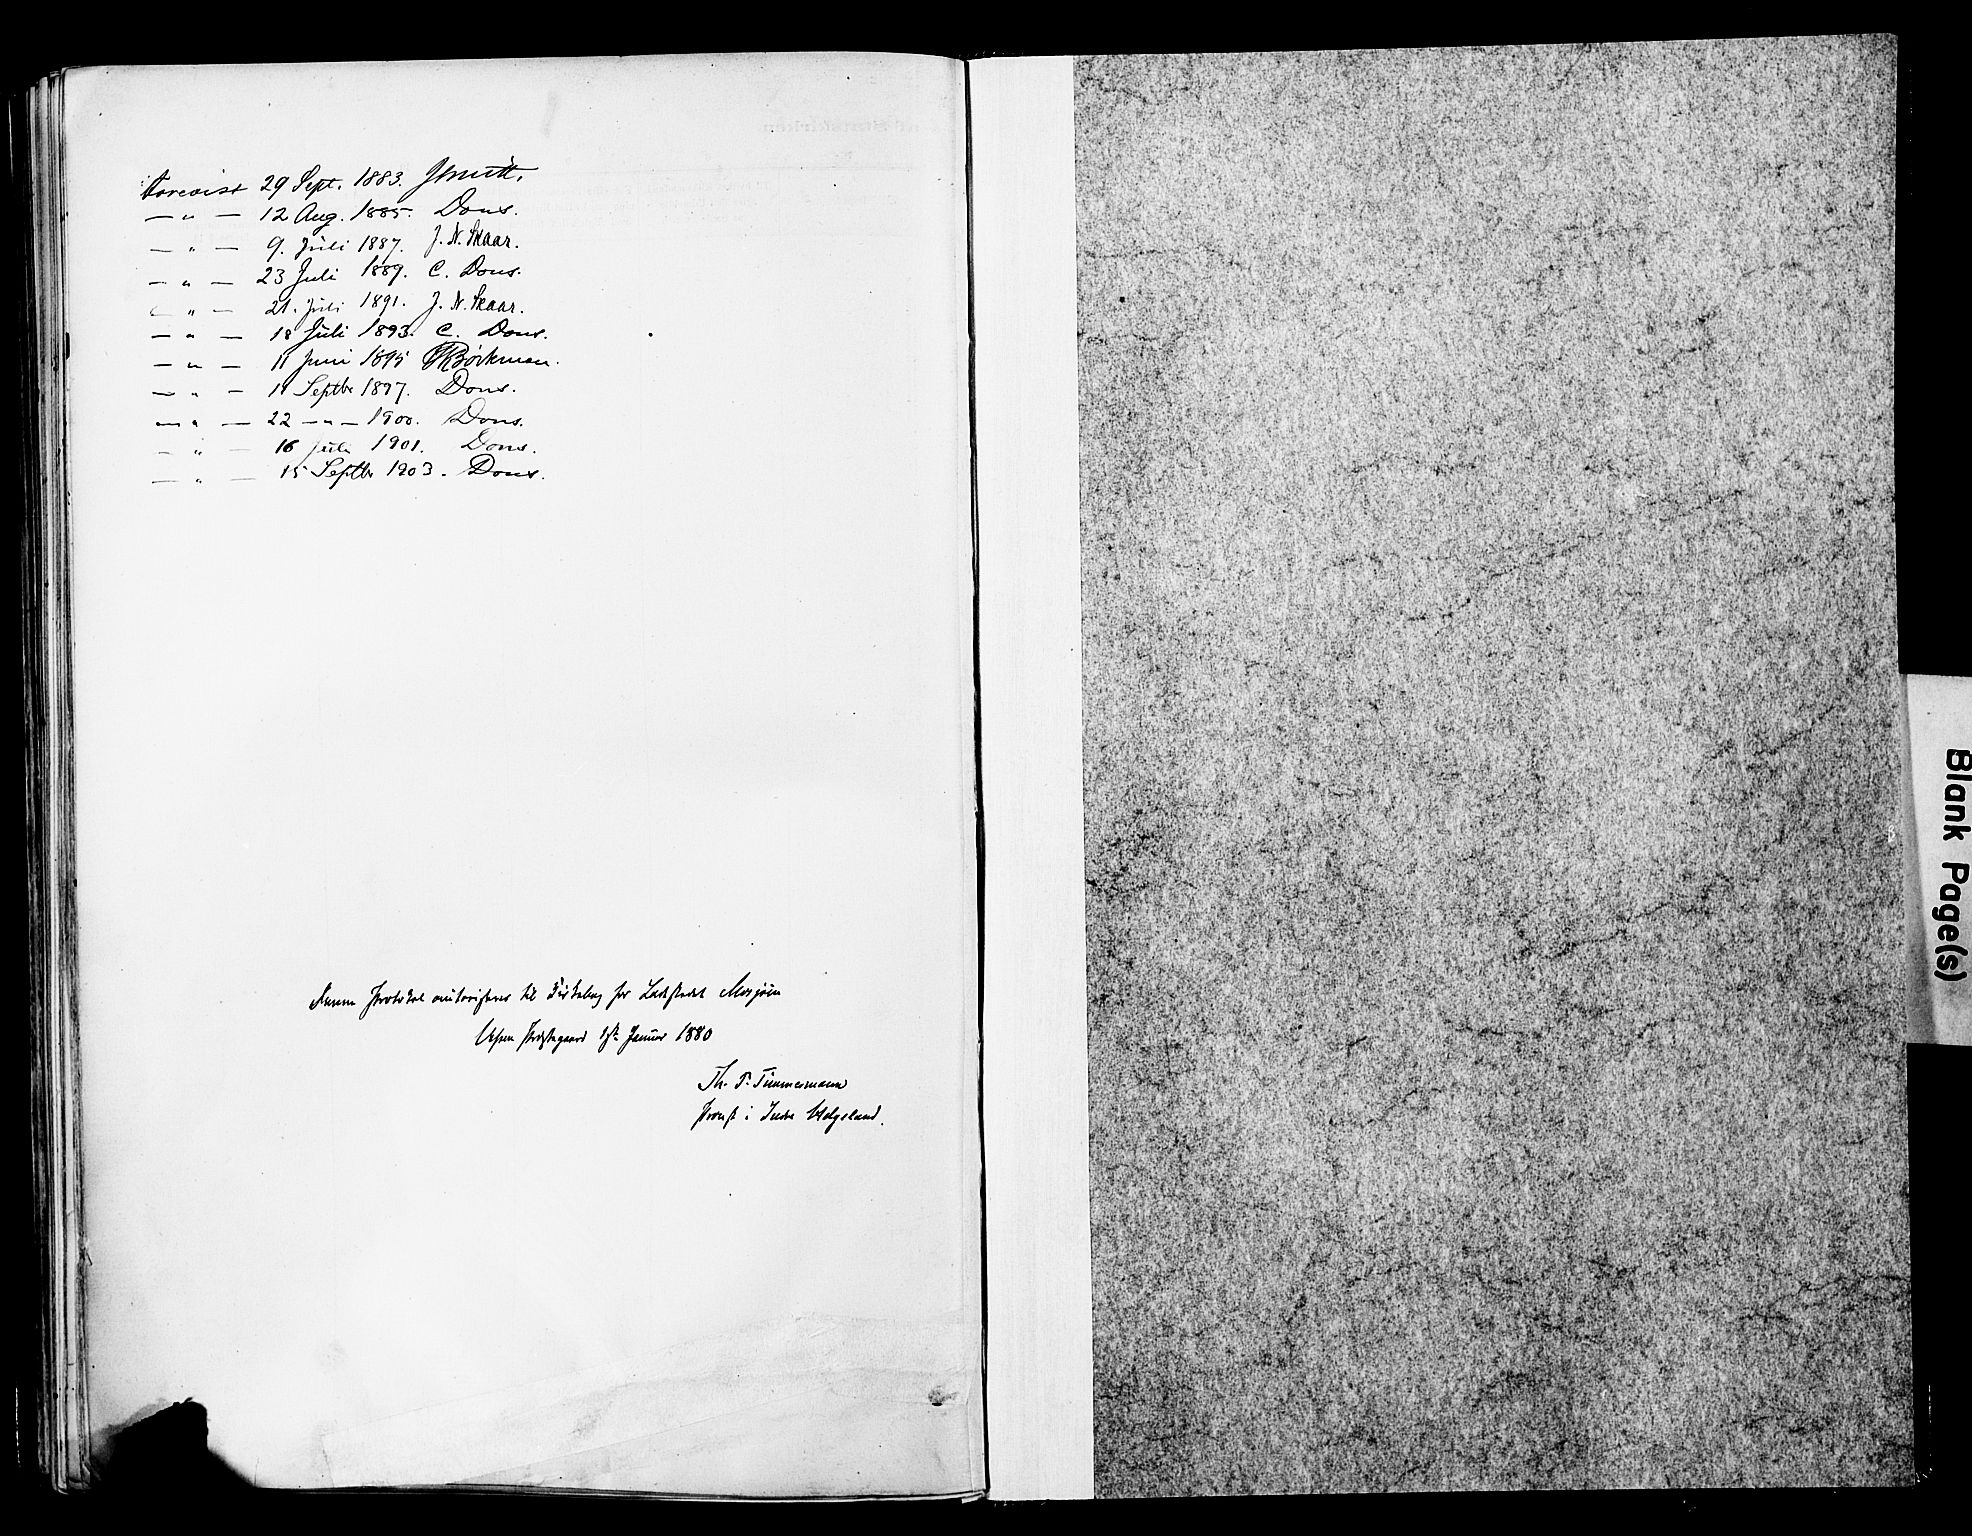 Forevist 29 Sept. 1883. JSmitt.
— " — 12 Aug. 1885. Dons.
— " — 9. Juli 1887. J. N. Skaar.
— " — 23 Juli 1889. C. Dons.
— " — 21. Juli 1891. J. N. Skaar.
— " — 18 Juli 1893. C. Dons.
— " — 11 Juni 1895 Bøckman.
— " — 11 Septbr 1897. Dons.
— " — 22 — " — 1900. Dons.
— " — 16 Juli 1901. Dons.
— " — 15 Septbr 1903. Dons.
Denne Protokol autoriseres til Kirkebog for Ladestedet Mosjøen
Vefsen Præstegaard Januar 1880
Th. P. Timmermann
Provst i Indre Helgeland.
Blank Page(s)